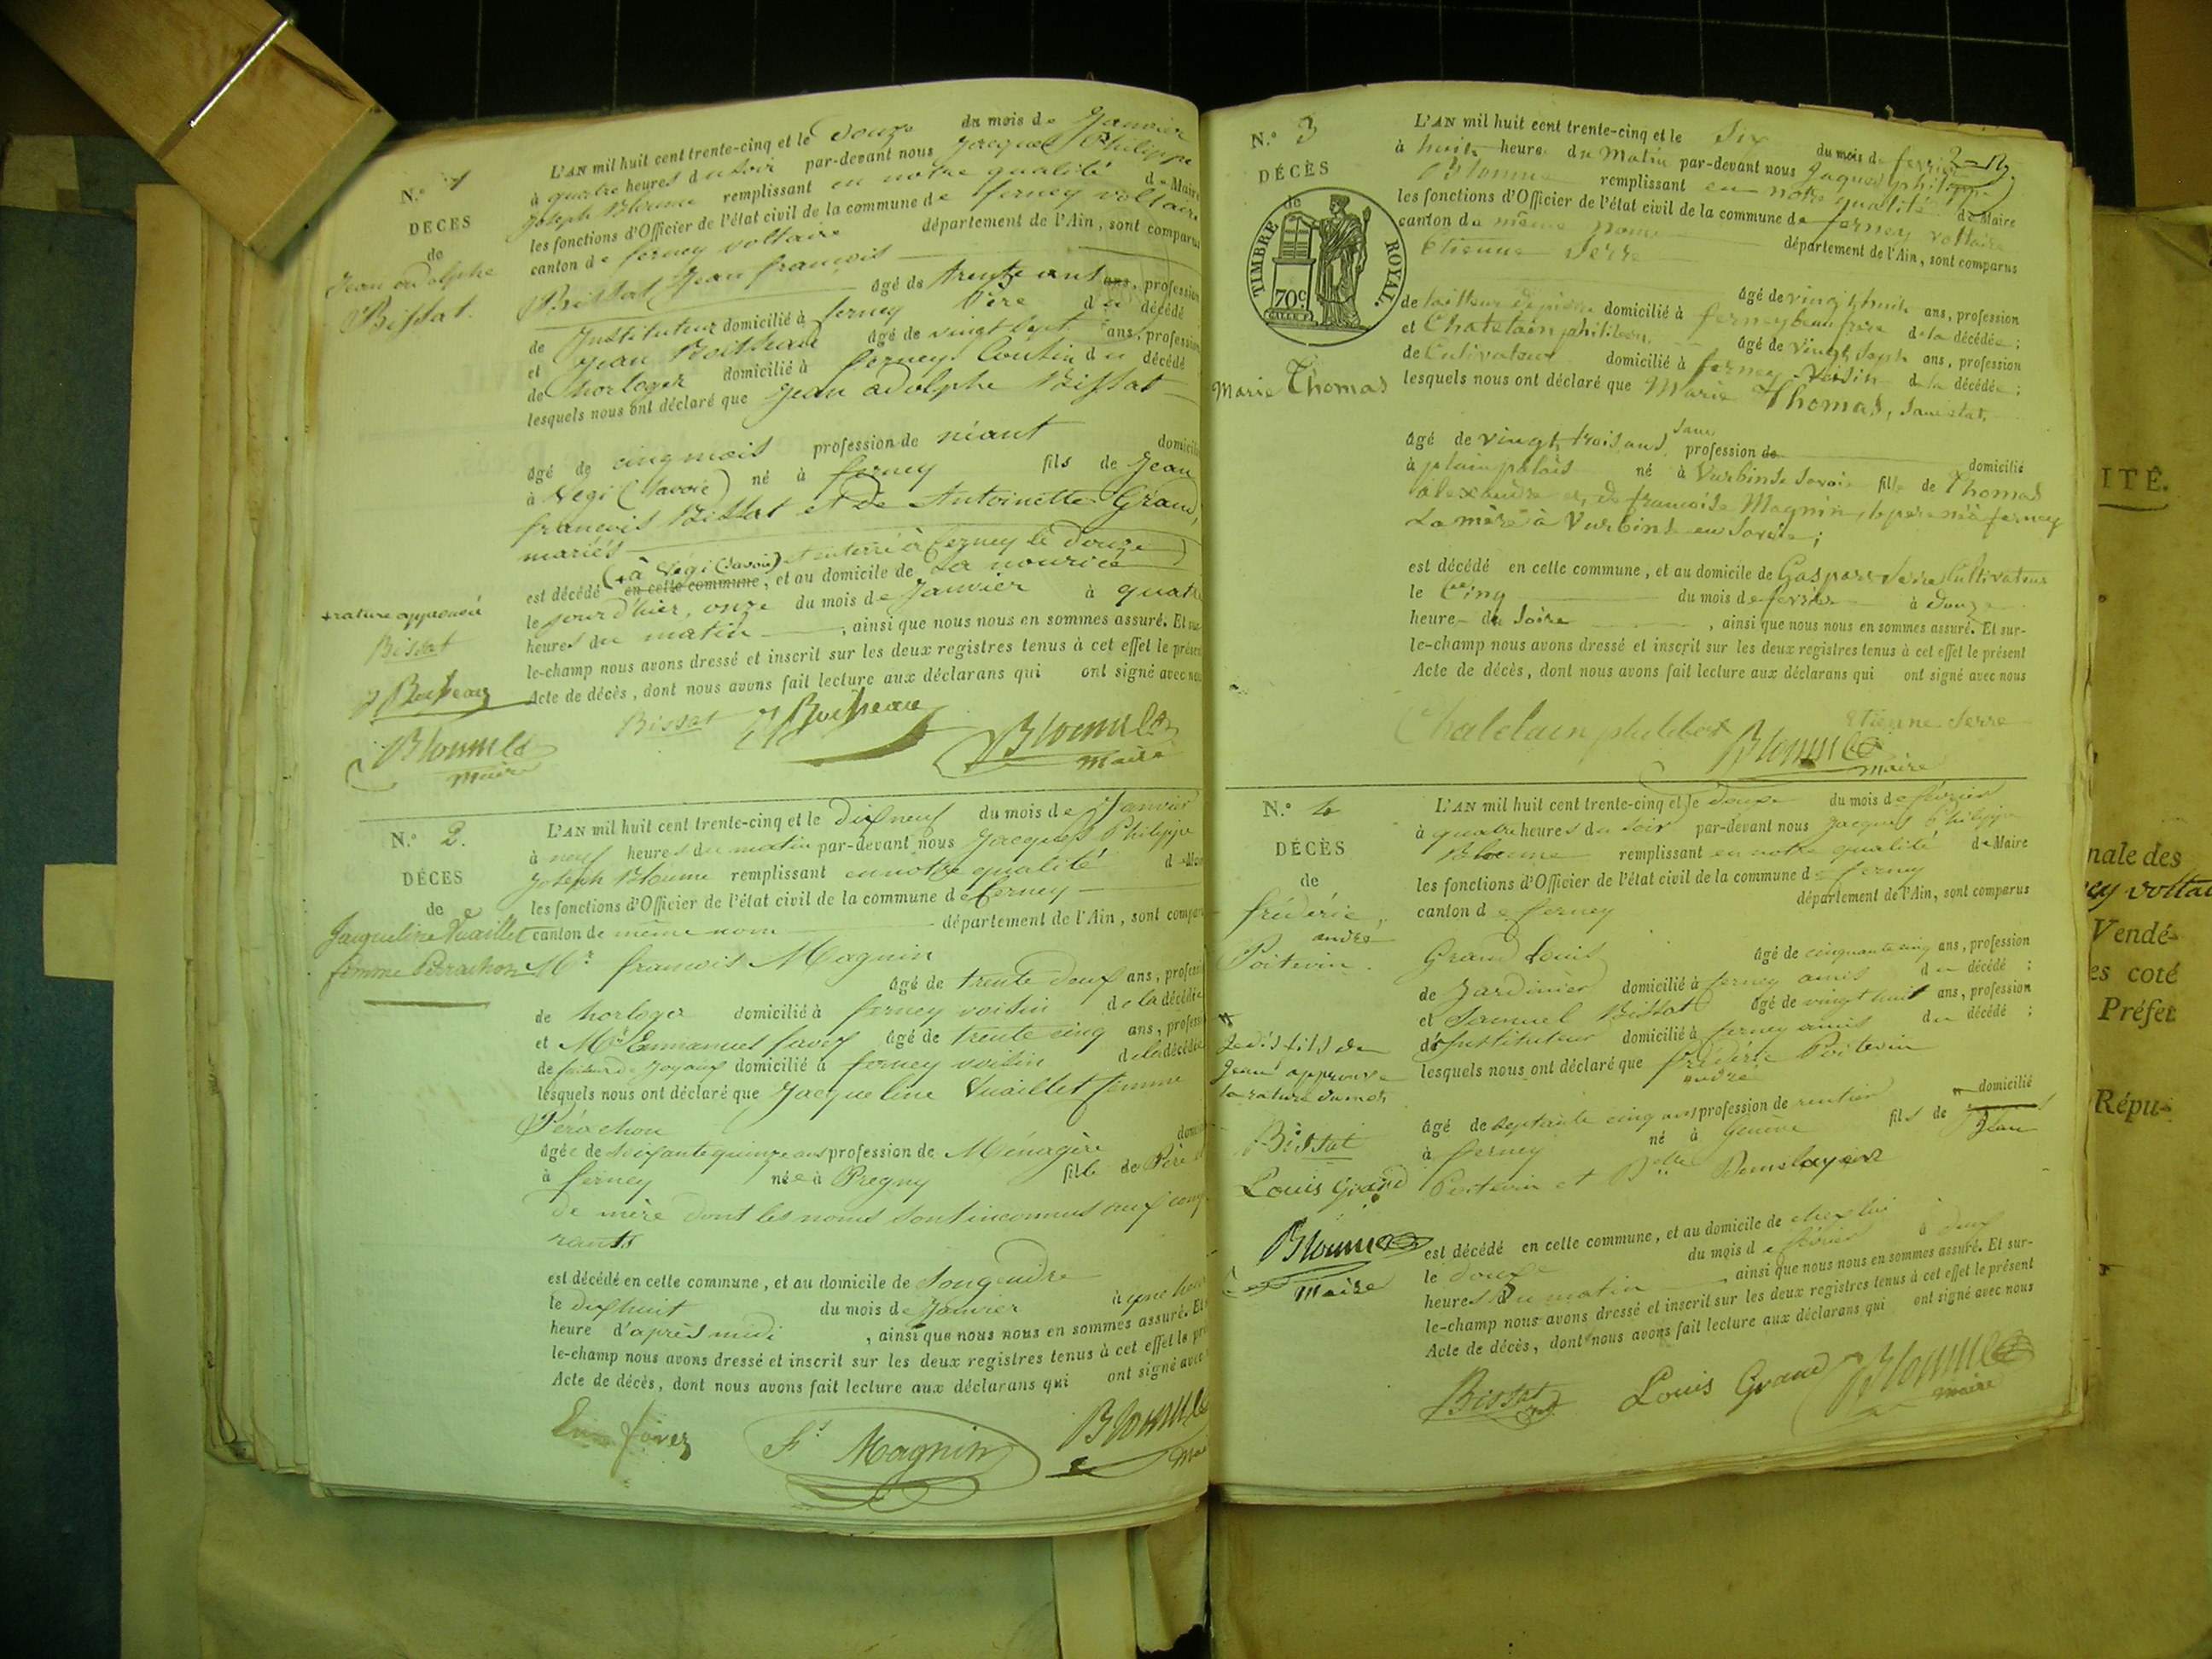 N.° 1
DÉCES
de
Jean adolphe
Bissat.
L'AN mil huit cent trente-cinq et le Douze du mois de Janvier
à quatre heures du soir par-devant nous Jacques Philippe
Joseph Bloume remplissant en notre qualité de Maire
les fonctions d'Officier de l'état civil de la commune de ferney voltaire
canton de ferney voltaire département de l'Ain, sont comparus
Bissat Jean françois
agé de trente ans ans, profession
de Instituteur domicilié à ferney Père du décédé
et Jean Boisseau agé de vingt sept ans, profession
de horloger domicilié à ferney Cousin du décédé
lesquels nous ont déclaré que Jean adolphe Bissat
agé de cinq mois profession de néant domicilié
à Vegi (Savoie) né à ferney fils de Jean
françois Bissat et de Antoinette Grand,
mariés
(+ à Vegi (Savoie) et enterré à ferney le douze)
est décédé en cette commune, et au domicile de La nourice
le jour d'hier, onze du mois de Janvier à quatre
heures du matin, ainsi que nous nous en sommes assuré. Et sur-
le-champ nous avons dressé et inscrit sur les deux registres tenus à cet effet le présent
Acte de décès, dont nous avons fait lecture aux déclarans qui ont signé avec nous
+ rature approuvée
Bissat
J Boisseau
Bloume
maire
Bissat J Boisseau Bloume
maire
N.° 2.
DÉCES
de
Jacqueline Vuaillet
femme Perrachon
L'AN mil huit cent trente-cinq et le Dix neuf du mois de Janvier
à neuf heures du matin par-devant nous Jacques Philippe
Joseph Bloume remplissant en notre qualité de Maire
les fonctions d'Officier de l'état civil de la commune de ferney
canton de même nom département de l'Ain, sont comparus
Mr françois Magnin
agé de trente deux ans, profession
de horloger domicilié à ferney voisin de la décédée
et Mr Emmanuel favez agé de trente cinq ans, profession
de faiseur de Joyaux domicilié à ferney voisin de la décédée
lesquels nous ont déclaré que Jacqueline Vuaillet femme
Pérachon
agée de Soixante quinze ans profession de Ménagère
à ferney née à Pregny fille de Père et
de mère dont les noms sont inconnus aux comp
rants
est décédé en cette commune, et au domicile de Son gendre
le dix huit du mois de Janvier à une heure
heure d'après midi, ainsi que nous nous en sommes assuré. Et
le-champ nous avons dressé et inscrit sur les deux registres tenus à cet effet le pré
Acte de décès, dont nous avons fait lecture aux déclarans qui ont signé avec
Em favez Fs Magnin Bloume
N.° 3
DÉCÈS
de
TIMBRE ROYAL.
70c
Marie Thomas
2=
L'AN mil huit cent trente-cinq et le Six du mois de fevrier
à huit heure du Matin par-devant nous Jaques philippe
Bloume remplissant en notre qualité de Maire
les fonctions d'Officier de l'état civil de la commune de ferney voltaire
canton du même nom département de l'Ain, sont comparus
Etienne Serre
agé de vingt huit ans, profession
de tailleur de pierre domicilié à ferney beau frère de la décédée;
et Chatelain philibon agé de vingt Sept ans, profession
de Cultivateur domicilié à ferney voisin de la décédée;
lesquels nous ont déclaré que Marie Thomas, Sans état,
agé de vingt trois ans sans profession de domicilié
à plainpalais né à Vurbinde Savoie fille de Thomas
alexandre et de françoise Magnin, le père né à ferney
La mère à Vurbinde en Savoie;
est décédé en cette commune, et au domicile de Gaspard Serre Cultivateur
le Cinq du mois de fevrier à Douze
heure du Soire, ainsi que nous nous en sommes assuré. Et sur-
le-champ nous avons dressé et inscrit sur les deux registres tenus à cet effet le présent
Acte de décès, dont nous avons fait lecture aux déclarans qui ont signé avec nous
Chatelain philibot Etienne Serre
Bloume
maire
N.° 4
DÉCÈS
de
fréderic,
andré
Poitevin.
L'AN mil huit cent trente-cinq et le douze du mois de février
à quatre heures du soir par-devant nous Jacques Philippe
Bloume remplissant en notre qualité de Maire
les fonctions d'Officier de l'état civil de la commune de ferney
canton de ferney département de l'Ain, sont comparus
Grand Louis agé de cinquante cinq ans, profession
de Jardinier domicilié à ferney amis du décédé :
et Samuel Bissat agé de vingt huit ans, profession
de Instituteur domicilié à ferney amis du décédé :
lesquels nous ont déclaré que fréderic Poitevin
andré
agé de septante cinq ans profession de rentier domicilié
à ferney né à Genève fils de Jean
Poitevin et Delle Demelayer
est décédé en cette commune, et au domicile de chez lui
le douze du mois de février à deux
heures du matin, ainsi que nous nous en sommes assuré. Et sur-
le-champ nous avons dressé et inscrit sur les deux registres tenus à cet effet le présent
Acte de décès, dont nous avons fait lecture aux déclarans qui ont signé avec nous
Je dis fils de
Jean approuve
la rature du mot
Bissat
Louis Grand
Bloume
Maire
Bissat Louis Grand Bloume
maire
ITÉ.
nale des
ey voltai
Vendé-
es coté
Préfet
Répu-